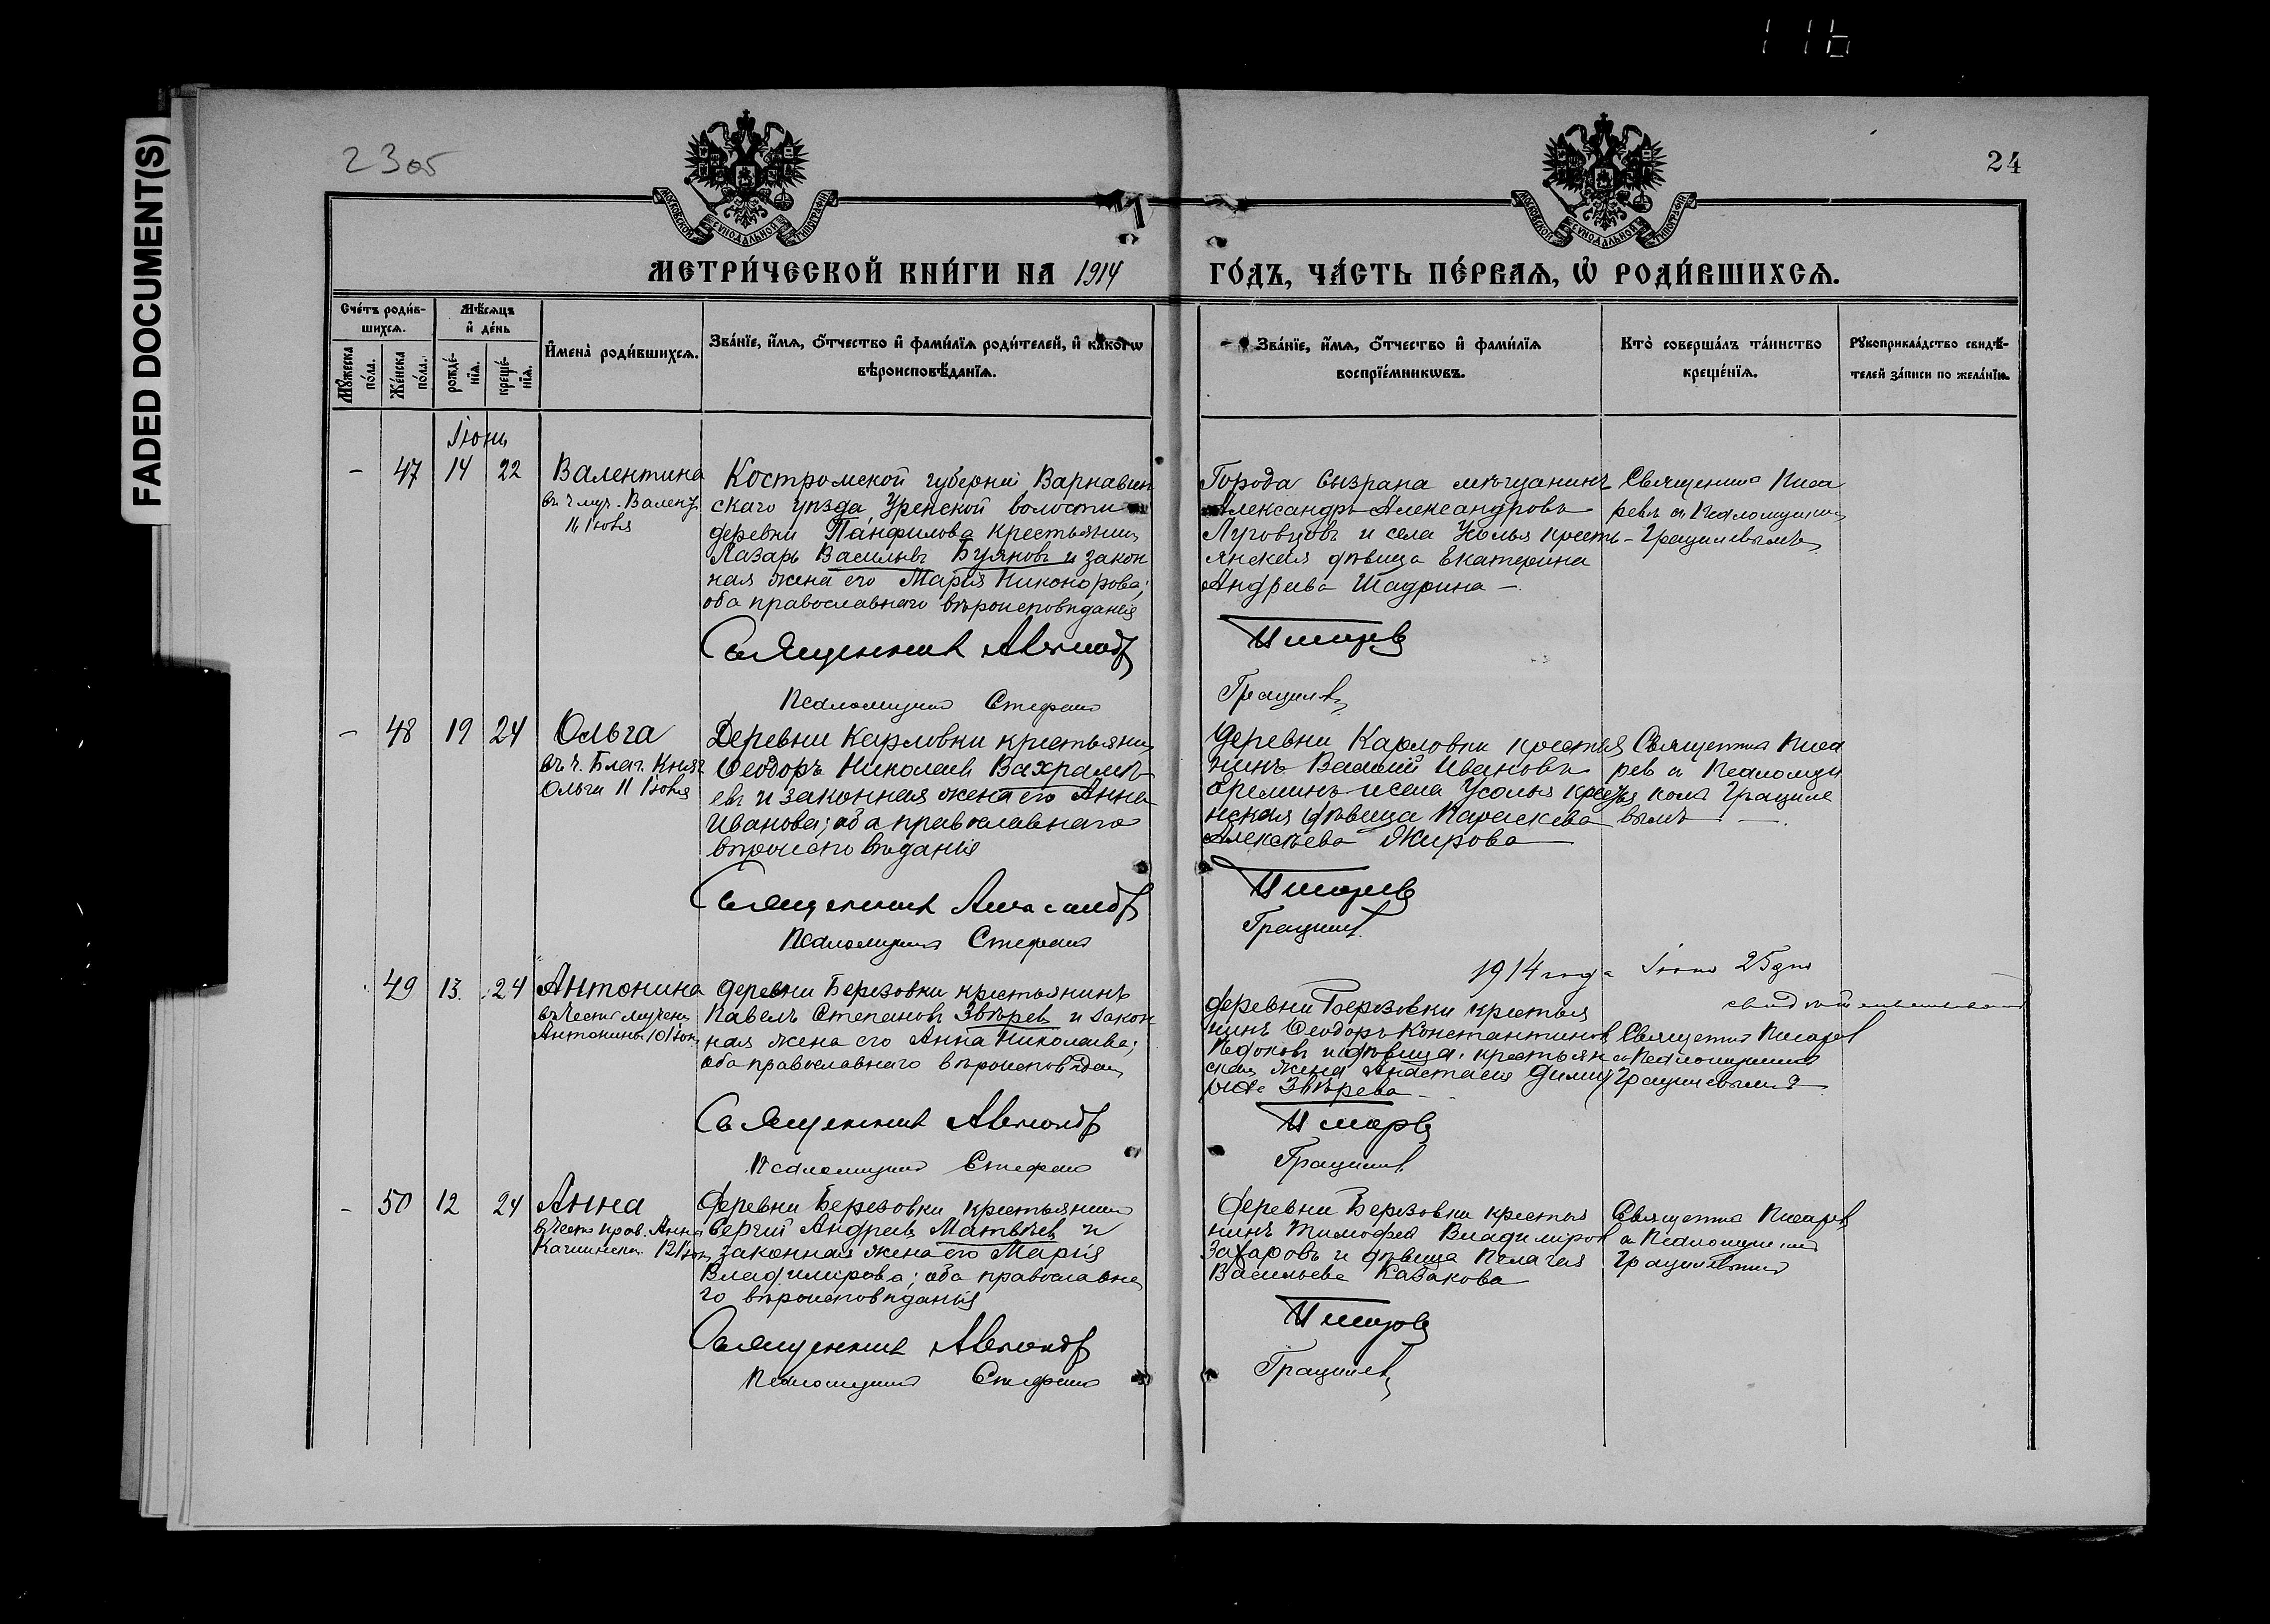 116
FADED DOCUMENT(S)
2305
24
МОСКОВСКОЙ СѴНОДАЛЬНОЙ ТИПОГРАФІИ
МОСКОВСКОЙ СѴНОДАЛЬНОЙ ТИПОГРАФІИ
МЕТРИ́ЧЕСКОЙ КНИ́ГИ НА 1914
ГО́ДЪ, ЧА́СТЬ ПЕ́РВАЯ, Ѡ РОДИ́ВШИХСЯ.
Сче́тъ роди́в-
шихся.
Мѣ́сяцъ
и де́нь
Мꙋ́жеска по́ла.
Же́нска по́ла.
рожде́-
нїя.
креще́-
нїя.
Имена̀ роди́вшихся.
Зва́нїе, и́мя, о́тчество и фами́лїя роди́телей, и како́гѡ
вѣроисповѣ́данїя.
Зва́нїе, и́мя, о́тчество и фами́лїя
воспрїе́мникѡвъ.
Кто̀ соверша́лъ та́инство
креще́нїя.
Рꙋкоприкла́дство свидѣ́-
телей за́писи по жела́нїю.
Іюнь
- 47 14 22
Валентина
въ ч. муч. Валент.
11 Іюня
Костромской губерніи Варнавин
скаго уѣзда, Уренской волости
деревни Панфилова крестьянинъ
Лазарь Васильевъ Буяновъ и закон
ная жена его Марія Никонорова;
оба православнаго вѣроисповѣданія
Священникъ Александръ
Псаломщикъ Стефанъ
Города Сызрана мѣщанинъ
Александръ Александровъ
Луговцовъ и села Усолья кресть-
янская дѣвица Екатерина
Андреева Шадрина -
Писаревъ
Грацилевъ
Священникъ Писа
ревъ съ Псаломщикомъ
Грацилевымъ
- 48 19 24
Ольга
въ ч. Благ. Княг.
Ольги 11 Іюля
Деревни Карловки крестьянинъ
Ѳеодоръ Николаевъ Вахрамѣ-
евъ и законная жена его Анна
Иванова; оба православнаго
вѣроисповѣданія
Священникъ Александръ
Псаломщикъ Стефанъ
Деревни Карловки крестья
нинъ Василій Ивановъ
Ереминъ и села Усолья крестья
нская дѣвица Параскева
Алексѣева Жирова
Писаревъ
Грацилевъ
Священникъ Писа
ревъ съ Псаломщи
комъ Грациле
вымъ -.
1914 года Іюня 25 дня
49 13. 24
Антонина
въ честь мучен.
Антонины 10 Іюня
деревни Березовки крестьянинъ
Павелъ Степановъ Звѣревъ и закон
ная жена его Анна Николаева;
оба православнаго вѣроисповѣдан.
Священникъ Александръ
Псаломщикъ Стефанъ
деревни Березовки крестья
нинъ Ѳеодоръ Константиновъ
и дѣвица, крестьян
ская жена Анастасія Димит
Звѣрева -
Писаревъ
Грацилевъ
Священникъ Писаревъ
съ Псаломщикомъ
Грацилевымъ
- 50 12 24
Анна
въ честь прав. Анны
Кашинской 12 Іюня
Деревни Березовки крестьянинъ
Сергій Андреевъ Матвѣевъ и
законная жена его Марія
Владимірова; оба православна
го вѣроисповѣданія
Священникъ Александръ
Псаломщикъ Стефанъ
Деревни Березовки крестья
нинъ Тимофей Владиміров
Захаровъ и дѣвица Пелагея
Васильева Казакова
Писаревъ
Грацилевъ
Священникъ Писаревъ
съ Псаломщикомъ
Грацилевымъ